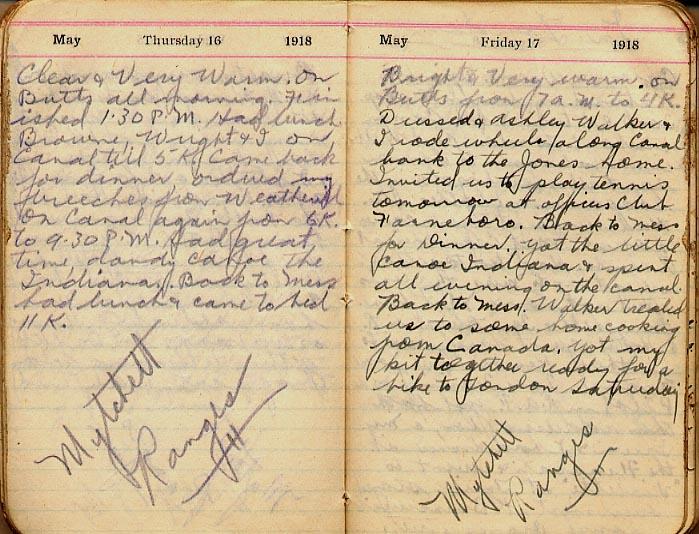 May Thursday 16 1918
Clear & Very Warm. On
Butts all morning. Fin
ished 1.30 P.M. Had lunch
Browne, Wright & I on
Canal till 5 K. Came back
for dinner ordered my
Breeches from Weatherill
On Canal again from 6 K.
to 9.30 P.M. Had great
time dandy canoe the
Indiana. Back to Mess
had lunch & came to bed
11 K.
Mytchett
Ranges
May Friday 17 1918
Bright & Very warm. on
Butts from 7 a.m. to 4 K.
Dressed & Ashley Walker &
I rode wheels along Canal
bank to the Jones home.
Invited us to play tennis
tomorrow at officers Club
Farneboro. Back to Mess
for Dinner. Got the little
canoe Indiana & spent
all evening on the canal.
Back to Mess. Walker treated
us to some home cooking
from Canada. Got my
kit together ready for a
hike to London Saturday
Mytchett
Ranges